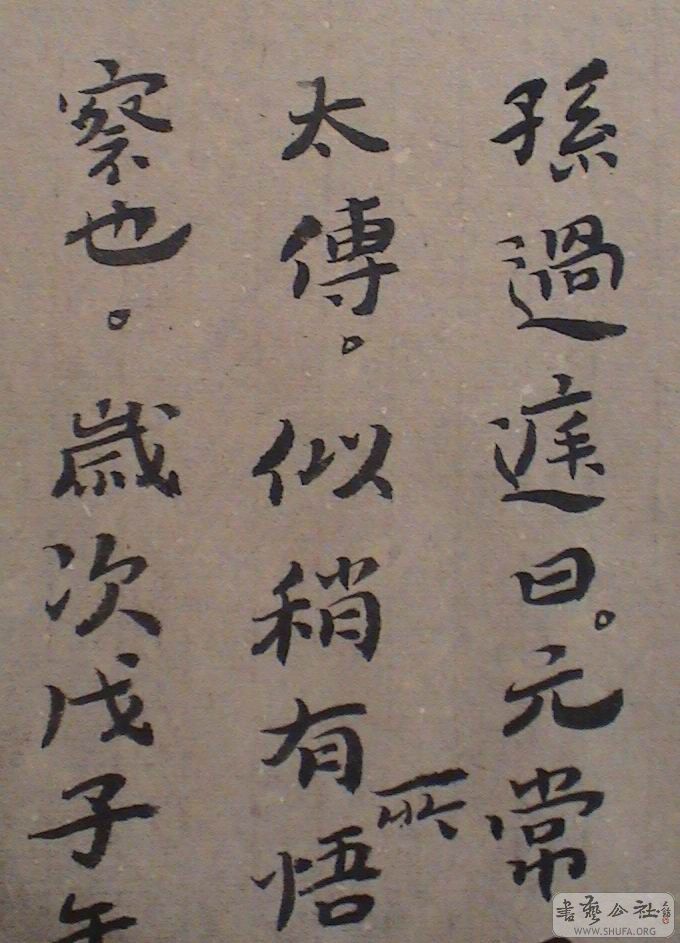 孫過庭曰。元常
太傅。似稍有所悟
察也。歲次戊子年
書藝公社
WWW.SHUFA.ORG